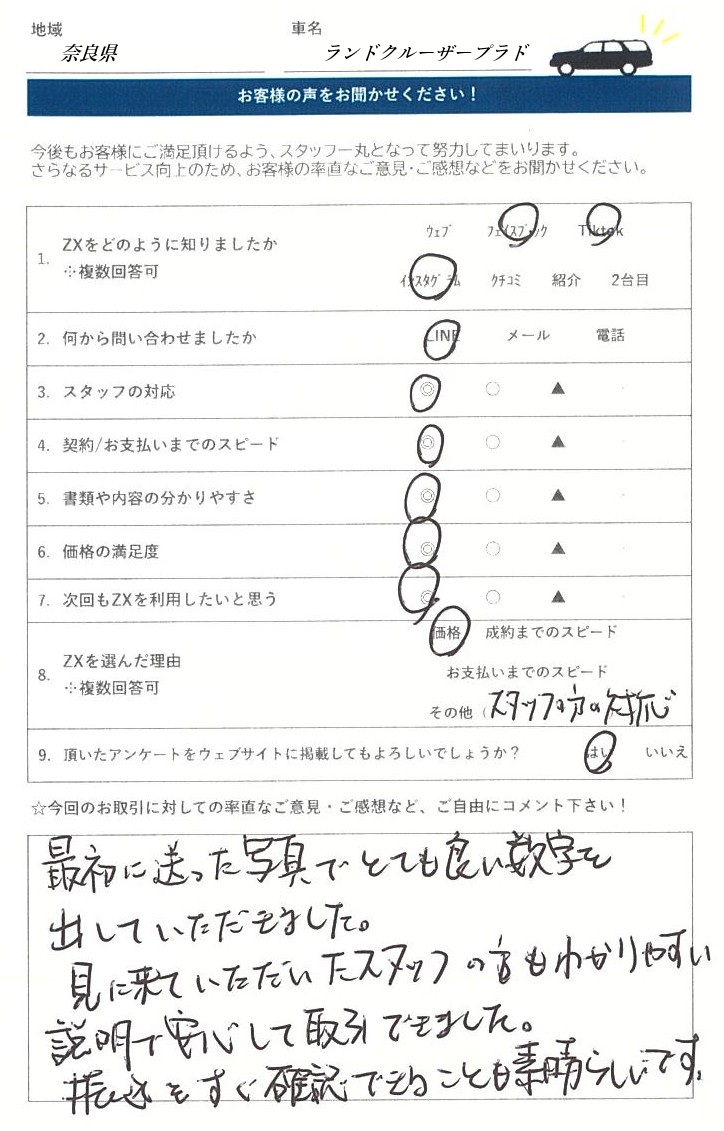 地域
奈良県
車名
ランドクルーザープラド
お客様の声をお聞かせください！
今後もお客様にご満足頂けるよう、スタッフ一丸となって努力してまいります。
さらなるサービス向上のため、お客様の率直なご意見・ご感想などをお聞かせください。
1. ZXをどのように知りましたか
※複数回答可
ｳｪﾌﾞ ﾌｪｲｽﾌﾞｯｸ Tiktok
ｲﾝｽﾀｸﾞﾗﾑ ｸﾁｺﾐ 紹介 2台目
2. 何から問い合わせましたか LINE メール 電話
3. スタッフの対応 ◎ ○ ▲
4. 契約/お支払いまでのスピード ◎ ○ ▲
5. 書類や内容の分かりやすさ ◎ ○ ▲
6. 価格の満足度 ◎ ○ ▲
7. 次回もZXを利用したいと思う ◎ ○ ▲
8. ZXを選んだ理由
※複数回答可
価格 成約までのスピード
お支払いまでのスピード
その他（スタッフの方の対応
9. 頂いたアンケートをウェブサイトに掲載してもよろしいでしょうか？ はい いいえ
☆今回のお取引に対しての率直なご意見・ご感想など、ご自由にコメント下さい！
最初に送った写真でとても良い数字を
出していただきました。
見に来ていただいたスタッフの方もわかりやすい
説明で安心して取引できました。
振込をすぐ確認できることも素晴らしいです。